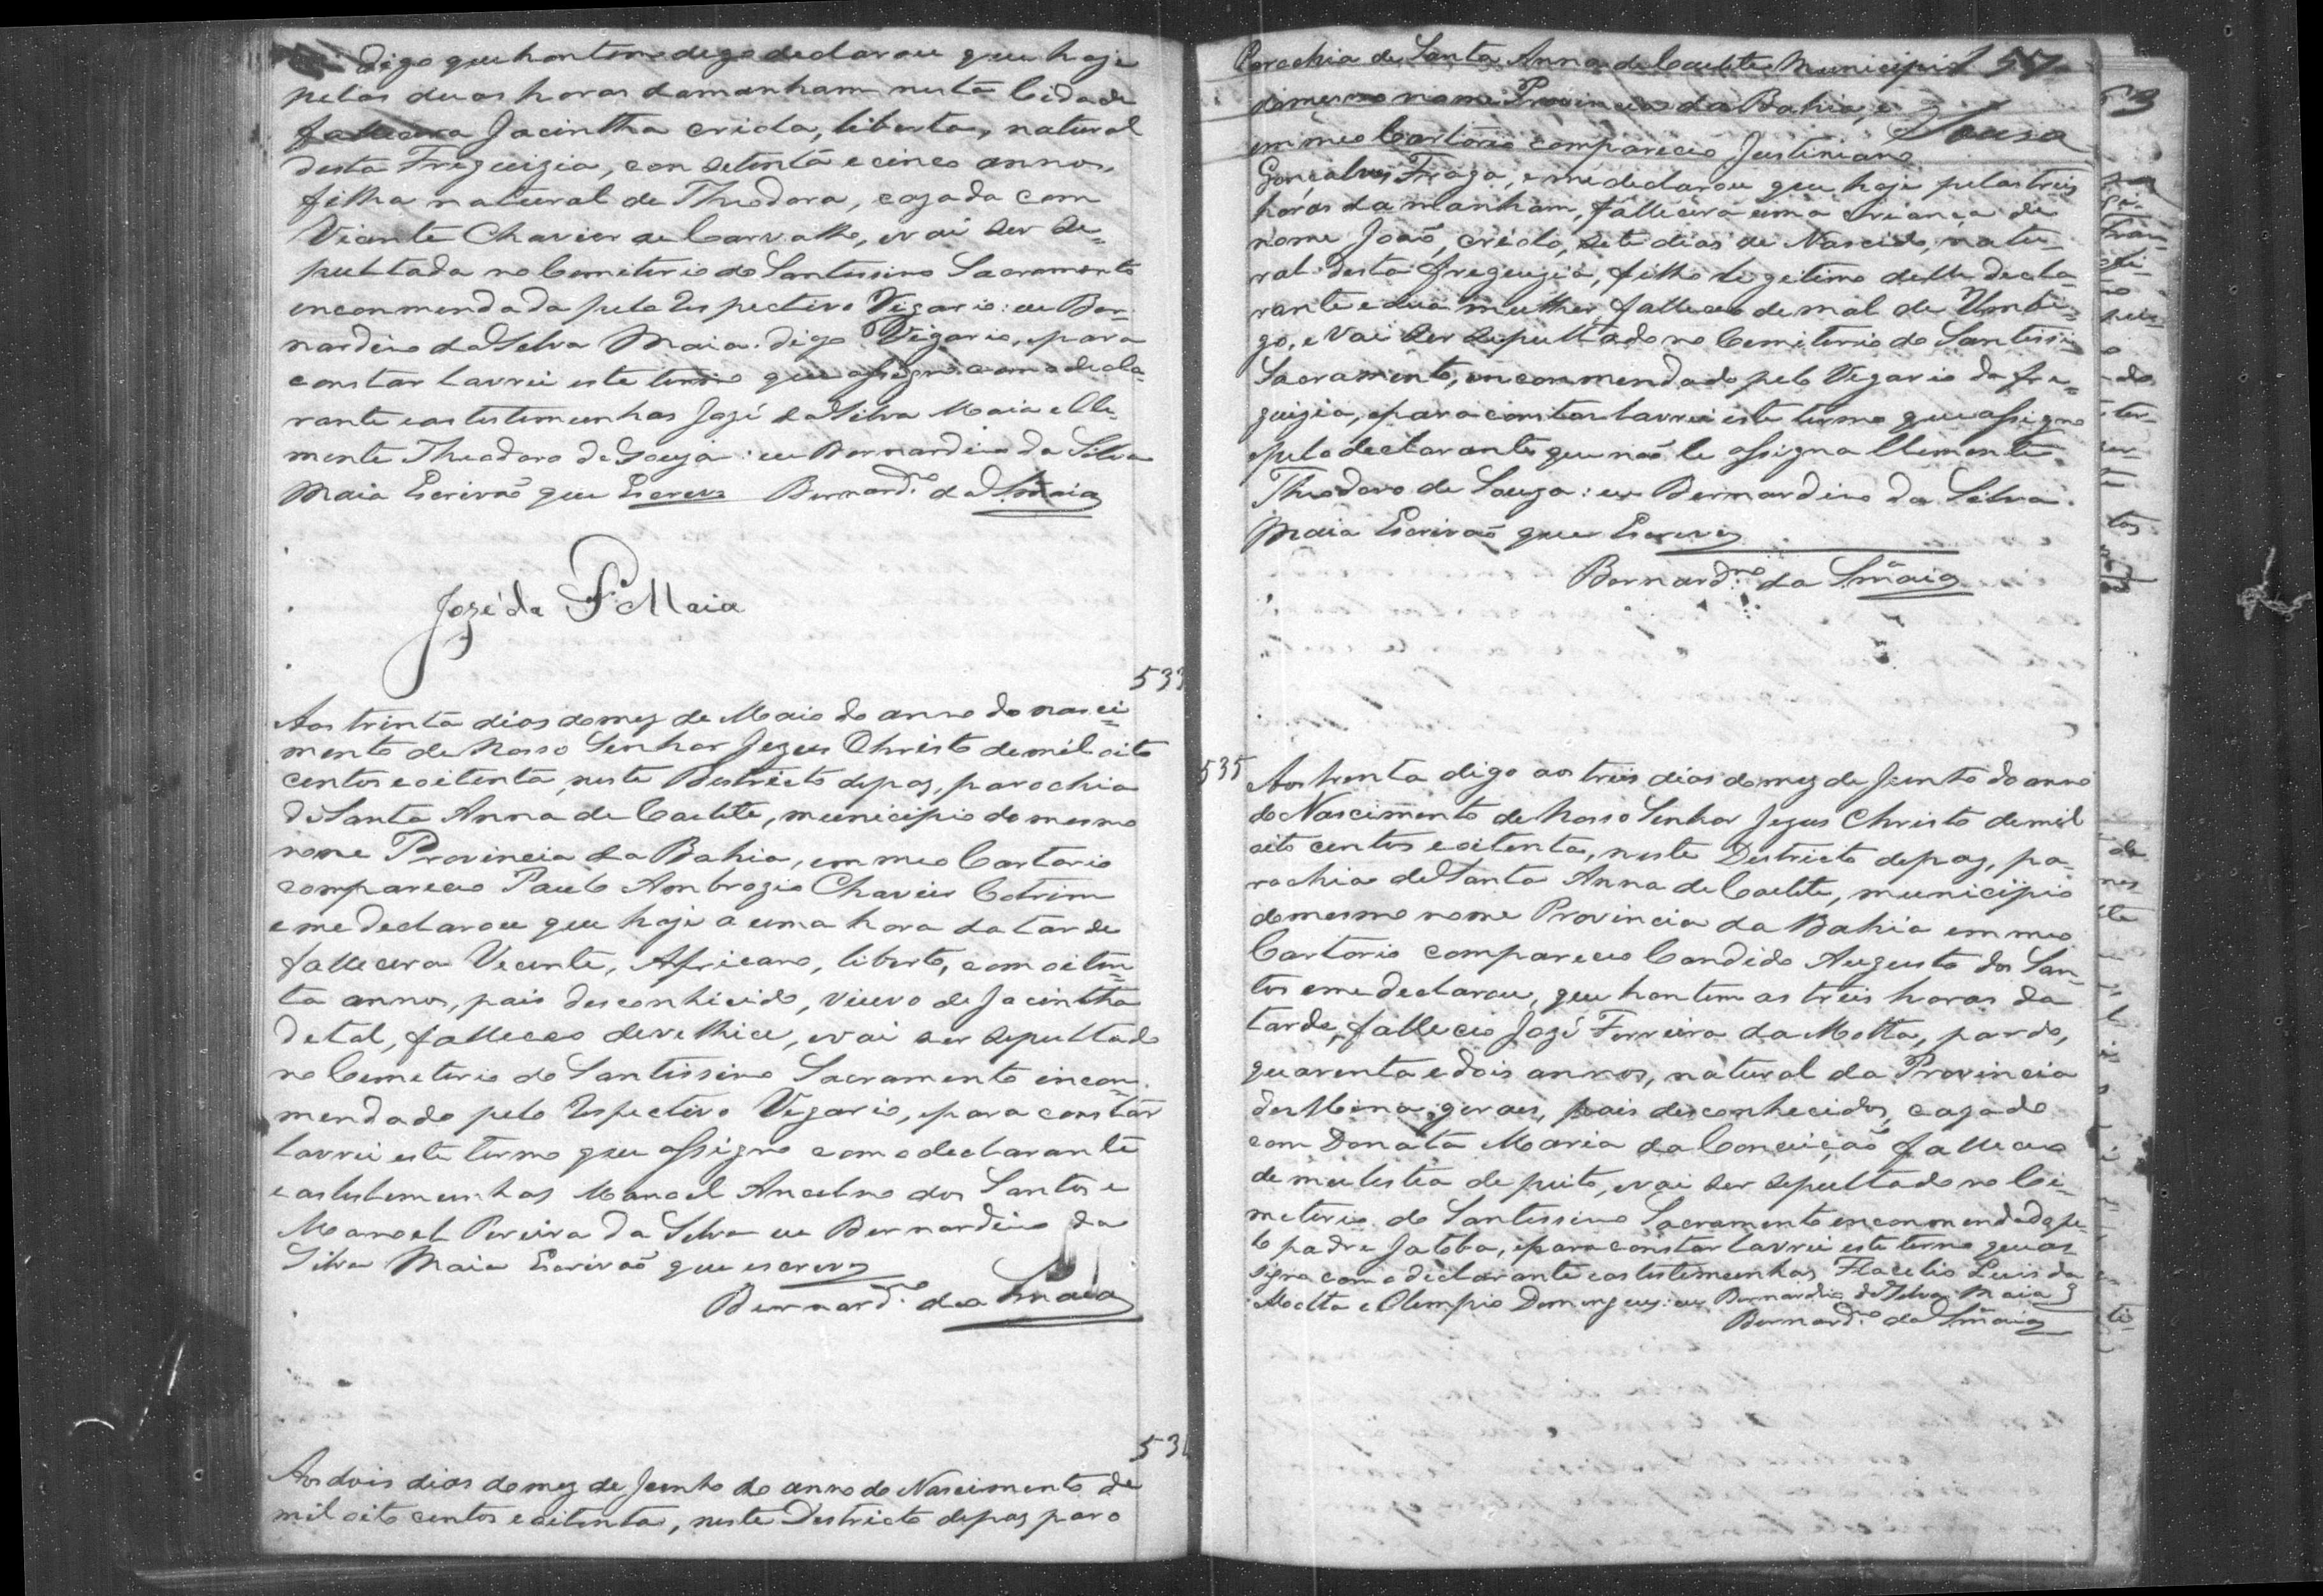 digo que hontem digo declarou que hoje
pelas duas horas damanham nesta Cidade
fallecera Jacintha criola, liberta, natural
desta Freguizia, con setenta e cinco annos,
filha natural de Theodora, cazada com
Vicente Chavier de Carvalho, e vai ser se=
pultada no Cemiterio do Santissimo Sacramento
enconmendada pelo Respectivo Vigario: eu Ber=
nardino da Silva Maia. digo Vigario, e para
constar lavrei este termo que assigno com o decla=
rante e as testemunhas Jozé da Silva Maia e Cle=
mente Theodoro de Souza: eu Bernardino da Silva
Maia Escrivaõ que Escrevi Bernard.º da S.ª Maia
Jozé da S.ª Maia
533
Aos trinta dias do mez de Maio do anno do nasci=
mento de Nosso Senhor Jezus Christo de mil oito
centos e oitenta, neste Destricto de paz, parochia
de Santa Anna de Caetite, municipio do mesmo
nome Provincia da Bahia, em meo Cartorio
compareceo Paulo Ambrozio Chavier Cotrim
e me declarou que hoje a uma hora da tarde
fallecera Vecente, Africano, liberto, com oiten=
ta annos, pais desconhicido, viuvo de Jacintha
de tal, falleceo de velhice, e vai ser sepultado
no Cemeterio do Santissimo Sacramento encon=
mendado pelo Respectivo Vegario, e para constar
lavrei este termo que assigno com o declarante
e as testemunhas Manoel Ancelmo dos Santos e
Manoel Pereira da Silva eu Bernardino da
Silva Maia Escrivaõ que escrevi
Bernard.º da S.ª Maia
53
Aos dois dias do mez de Junho do anno do Nascimento de
mil oito centos e oitenta, neste Destricto de paz paro
Parochia de Santa Anna de Caetite Municipio 57
do mesmo nome Provincia da Bahia, e
Souza
em meo Cartorio compareceo Justiniano
Gonçalves Fraga, e me declarou que hoje pelas treis
horas da manham, fallecera uma criança de
nome Joaõ, criolo, sete dias de Nascido, natu=
ral desta freguezia, filho ligetimo delle decla=
rante e sua mulher, falleceo de mal de Umbi=
go, e vai ser sepultado no Cemiterio do Santissi=
Sacramento, enconmendado pelo Vegario da fre=
guizia, e para constar lavrei este termo que assigno
e pelo declarante que naõ le assigna Clemente
Theodoro de Souza: eu Bernardino da Silva
Maia Escrivaõ que Escrevi
Bernard.no da S.ª Maia
535
Aos trenta digo ao treis dias do mez de Junho do anno
do Nascimento de Nosso Senhor Jezus Christo de mil
oito centos e oitenta, neste Destricto de paz, pa=
rochia de Santa Anna de Caetite, municipio
do mesmo nome Provincia da Bahia em meo
Cartorio compareceo Candido Augusto dos San=
tos e me declarou, que hontem as treis horas da
tarde, falleceo Jozé Ferreira da Motta, pardo,
quarenta e dois annos, natural da Provincia
des Mina, geraes, pais desconhecidos, cazado
com Donata Maria da Conceiçaõ falleceo
de mulestia de peito, e vai ser sepultado no Ce=
meterio do Santissimo Sacramento enconmendado pe=
lo padre Jatoba, e para constar lavrei este termo que as
signo com o declarante e as testemunhas Flacelio Luis da
Motta e Olempio Domingues: eu Bernardino da Silva Maia
Bernard.no da S.ª Maia